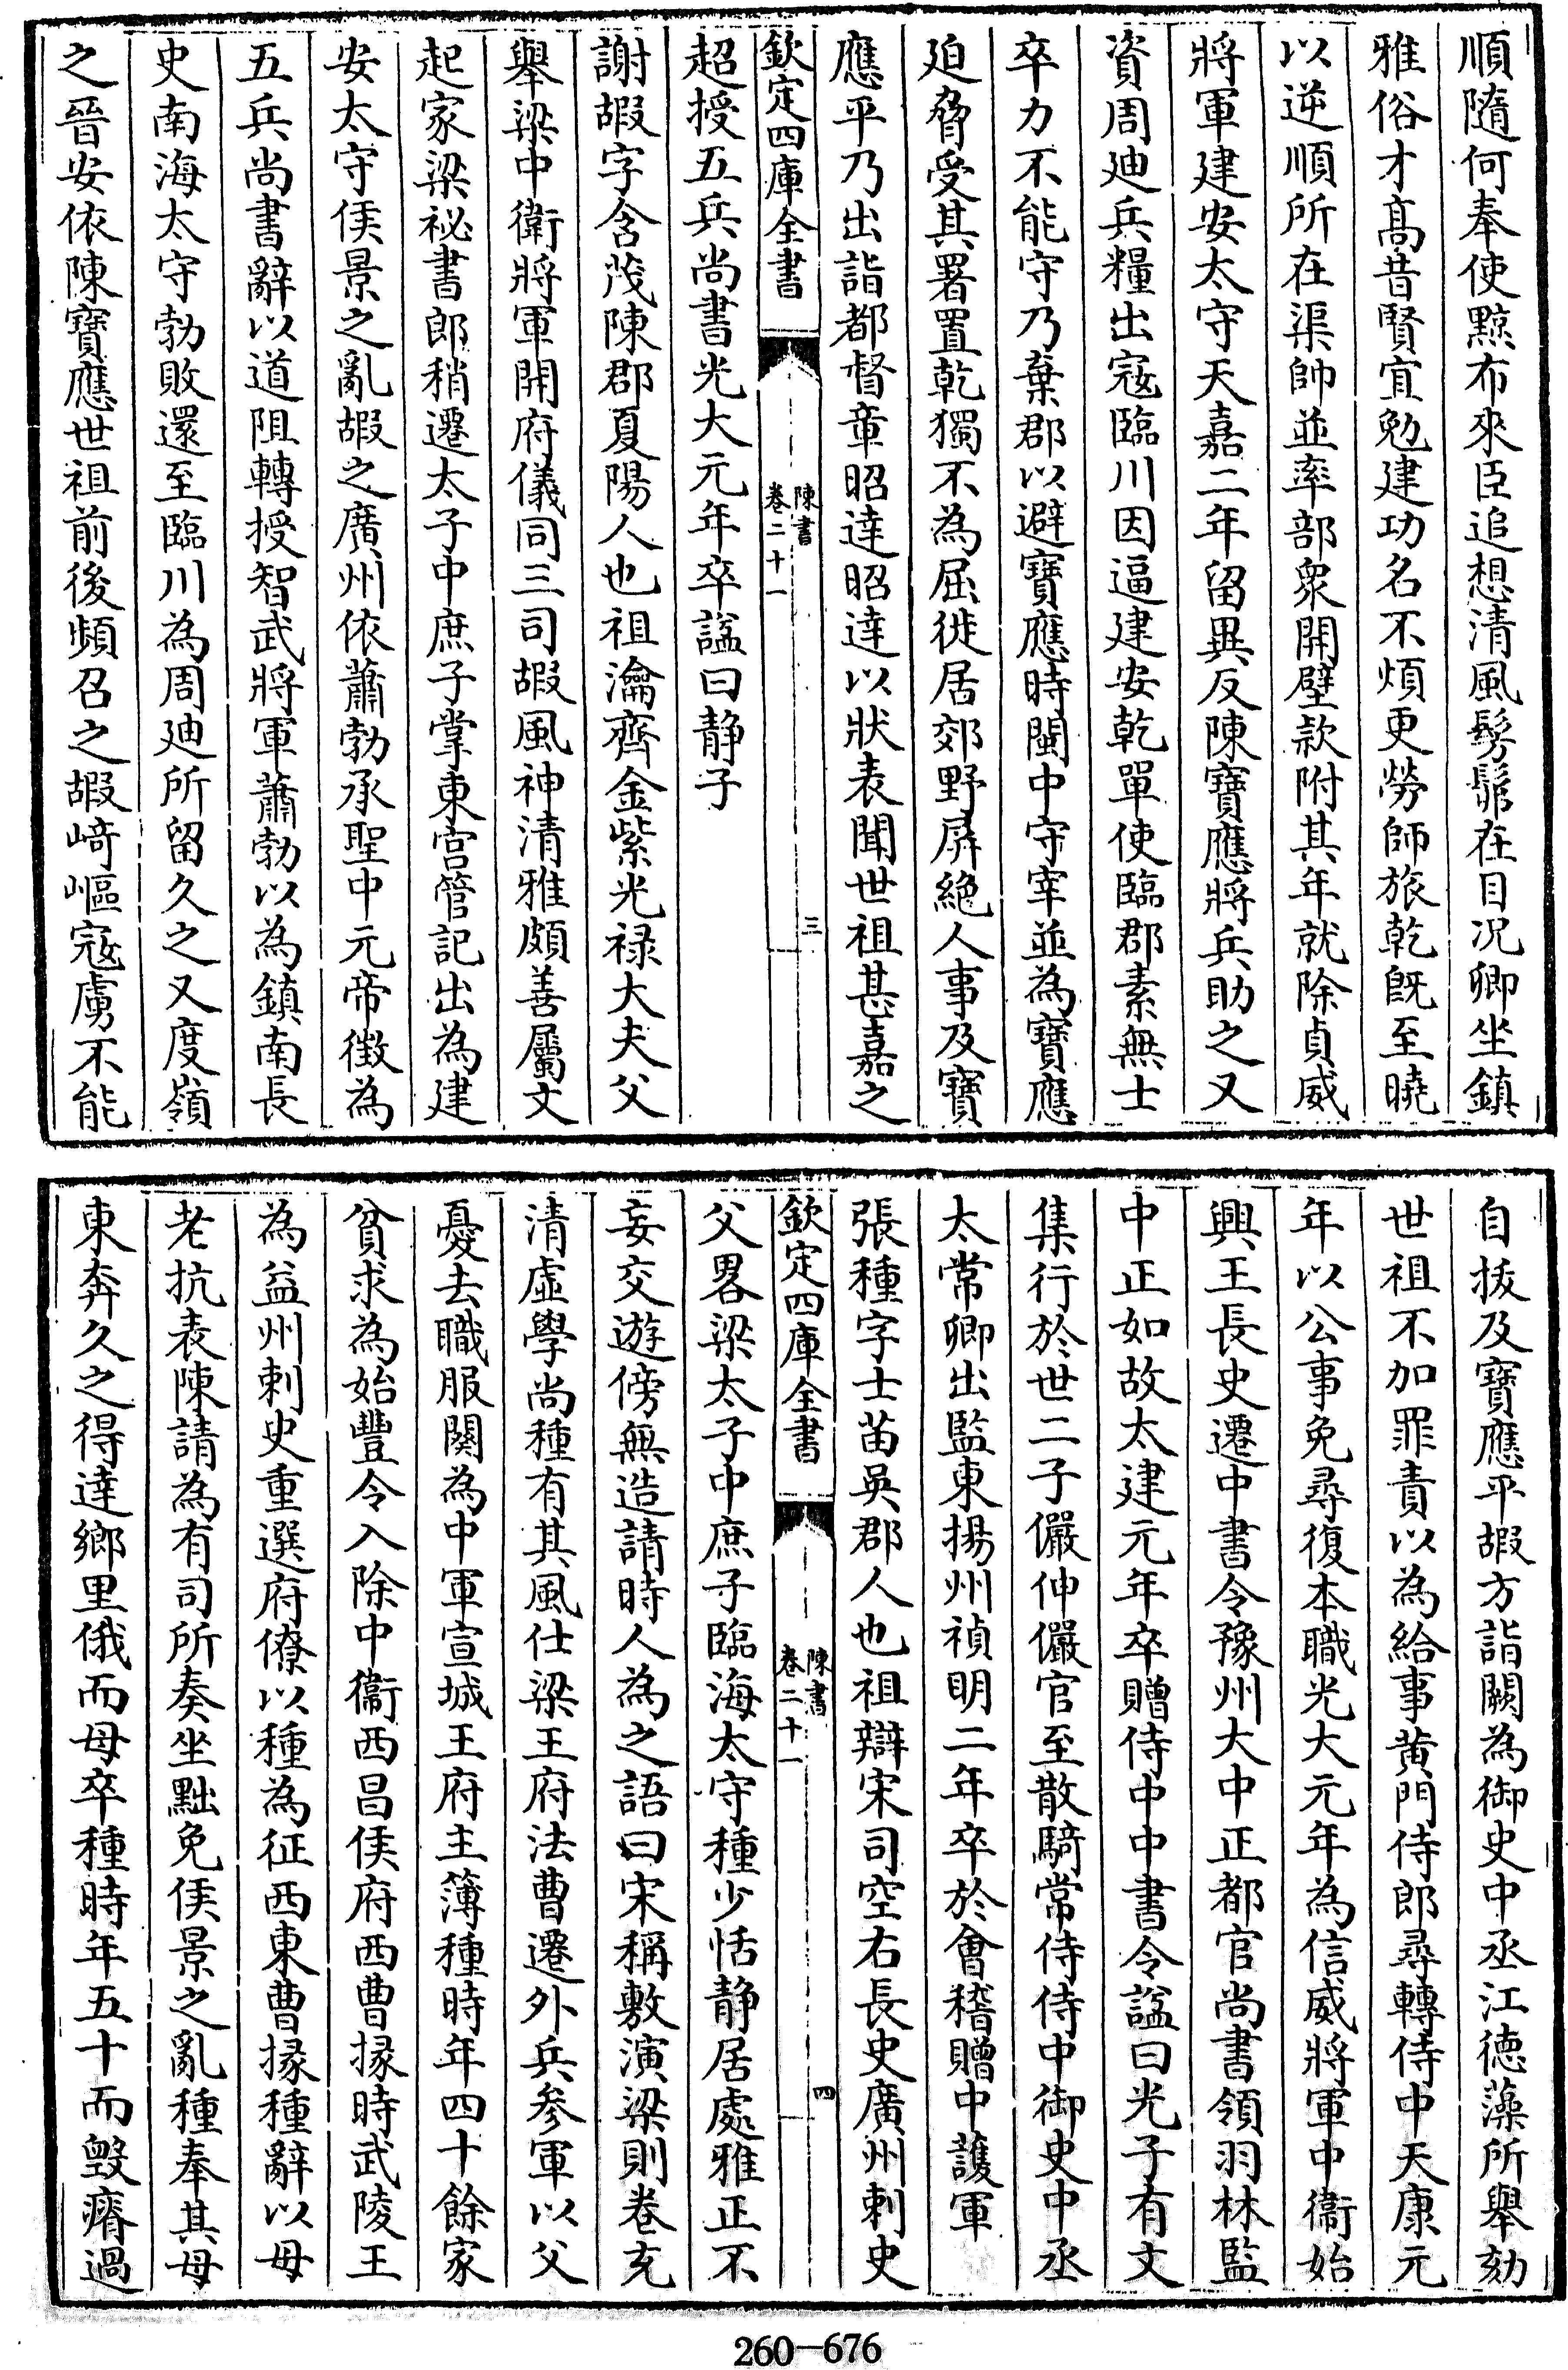 順隨何奉使黥布來臣追想清風髣髴在目况卿坐鎮
雅俗才髙昔賢宜勉建功名不煩更勞師旅乾既至曉
以逆順所在渠帥並率部衆開壁款附其年就除貞威
將軍建安太守天嘉二年留異反陳寶應將兵助之又
資周廸兵糧出寇臨川因逼建安乾單使臨郡素無士
卒力不能守乃棄郡以避寶應時閩中守宰並為寶應
廹脅受其署置乾獨不為屈徙居郊野屏絶人事及寶
應平乃出詣都督章昭達昭達以狀表聞世祖甚嘉之
欽定四庫全書
陳書
卷二十一
三
超授五兵尚書光大元年卒諡曰静子
謝嘏字含茂陳郡夏陽人也祖瀹齊金紫光禄大夫父
舉梁中衛將軍開府儀同三司嘏風神清雅頗善屬文
起家梁祕書郎稍遷太子中庶子掌東宫管記出為建
安太守侯景之亂嘏之廣州依蕭勃承聖中元帝徴為
五兵尚書辭以道阻轉授智武將軍蕭勃以為鎮南長
史南海太守勃敗還至臨川為周廸所留久之又度嶺
之晉安依陳寶應世祖前後頻召之嘏崎嶇寇虜不能
自拔及寶應平嘏方詣闕為御史中丞江德藻所舉劾
世祖不加罪責以為給事黄門侍郎尋轉侍中天康元
年以公事免尋復本職光大元年為信威將軍中衞始
興王長史遷中書令豫州大中正都官尚書領羽林監
中正如故太建元年卒贈侍中中書令諡曰光子有文
集行於世二子儼伸儼官至散騎常侍侍中御史中丞
太常卿出監東揚州禎明二年卒於會稽贈中護軍
張種字士苗吳郡人也祖辯宋司空右長史廣州刺史
欽定四庫全書
陳書
卷二十一
四
父畧梁太子中庶子臨海太守種少恬静居處雅正不
妄交遊傍無造請時人為之語曰宋稱敷演梁則卷充
清虛學尚種有其風仕梁王府法曹遷外兵參軍以父
憂去職服闋為中軍宣城王府主簿種時年四十餘家
貧求為始豐令入除中衞西昌侯府西曹掾時武陵王
為益州刺史重選府僚以種為征西東曹掾種辭以母
老抗表陳請為有司所奏坐黜免侯景之亂種奉其母
東奔久之得達鄉里俄而母卒種時年五十而毁瘠過
260—676